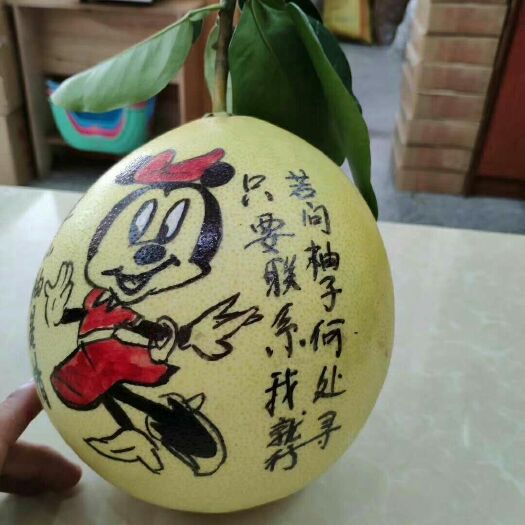 若问柚子何处寻
只要联系我就行